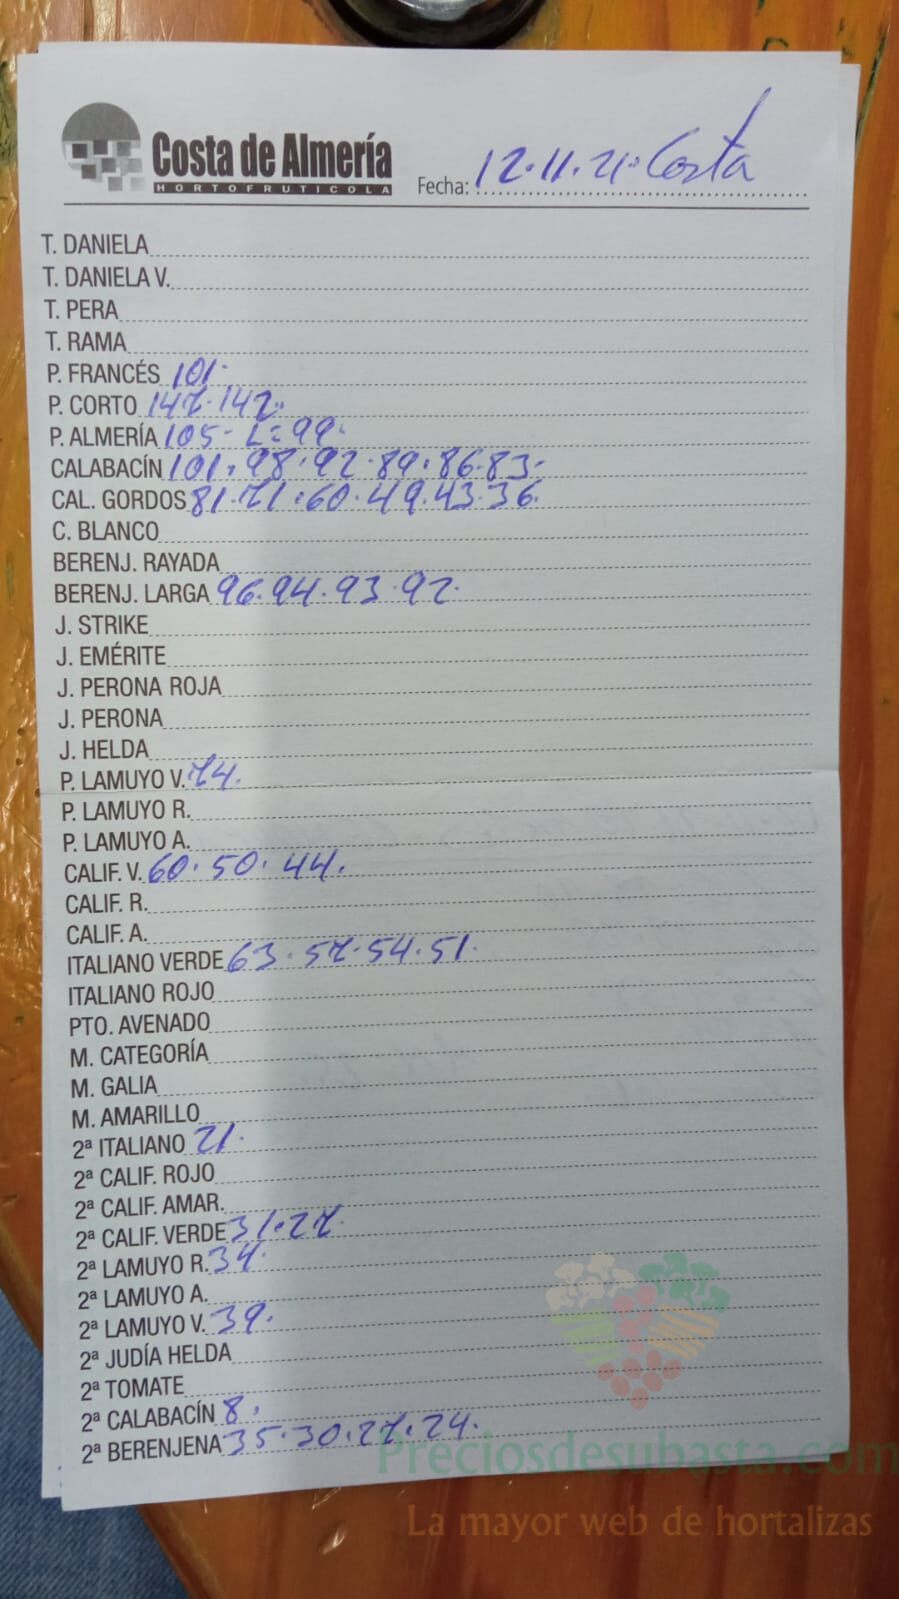 Costa de Almería
HORTOFRUTICOLA
Fecha: 12.11.21. Costa
T. DANIELA
T. DANIELA V.
T. PERA
T. RAMA
P. FRANCÉS 101.
P. CORTO 147. 142.
P. ALMERÍA 105- L=99.
CALABACÍN 101. 98. 92. 89. 86. 83.
CAL. GORDOS 81. 71. 60. 49. 43. 36.
C. BLANCO
BERENJ. RAYADA
BERENJ. LARGA 96. 94. 93. 92.
J. STRIKE
J. EMÉRITE
J. PERONA ROJA
J. PERONA
J. HELDA
P. LAMUYO V. 74.
P. LAMUYO R.
P. LAMUYO A.
CALIF. V. 60. 50. 44.
CALIF. R.
CALIF. A.
ITALIANO VERDE 63. 57. 54. 51.
ITALIANO ROJO
PTO. AVENADO
M. CATEGORÍA
M. GALIA
M. AMARILLO
2ª ITALIANO 21.
2ª CALIF. ROJO
2ª CALIF. AMAR.
2ª CALIF. VERDE 31. 27.
2ª LAMUYO R. 34.
2ª LAMUYO A.
2ª LAMUYO V. 39.
2ª JUDÍA HELDA
2ª TOMATE
2ª CALABACÍN 8.
2ª BERENJENA 35. 30. 27. 24.
Preciosdesubasta.com
La mayor web de hortalizas